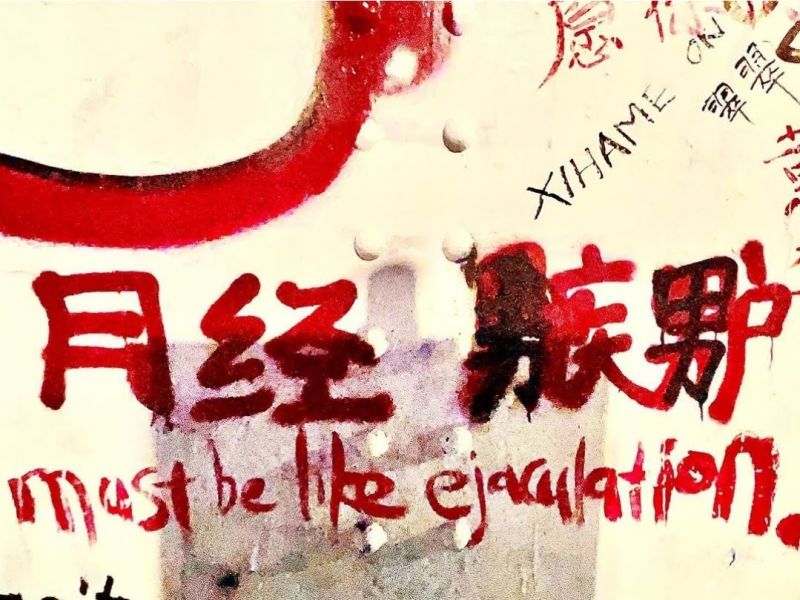 愿你
XIHAME ON
翠翠
月经
must be like ejaculation.